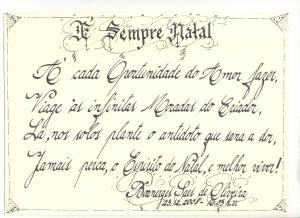 É Sempre Natal
A cada Oportunidade do Amor fazer,
Viage 'as infinitas Moradas do Criador,
Lá, nos solos plante o antídoto que sara a dor,
Jamais perca, o Espírito do Natal, e melhor viver!
de Oliveira
23.12.2008